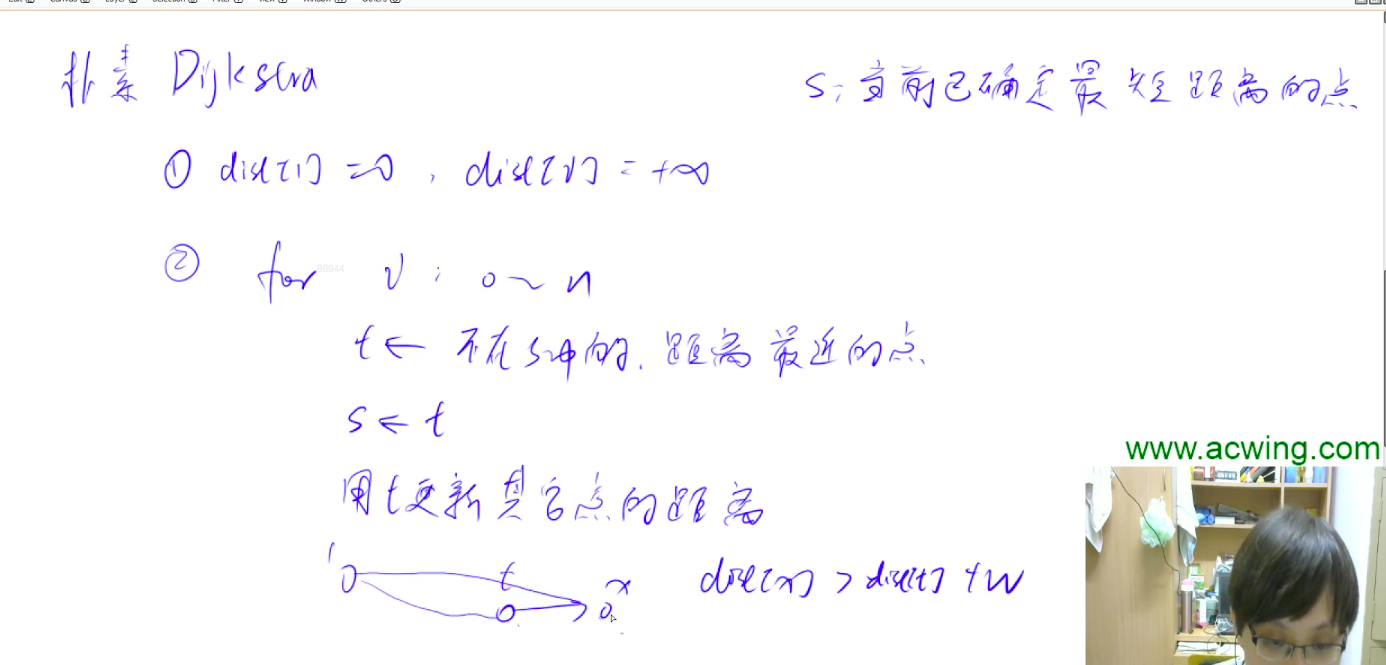 朴素 Dijkstra
S:当前已确定最短距离的点
① dist[1] = 0 , dist[v] = +∞
② for v : 0 ~ n
t ← 不在S中的, 距离最近的点.
S ← t
用t更新其它点的距离
1 t x dist[x] > dist[t] + w
www.acwing.com